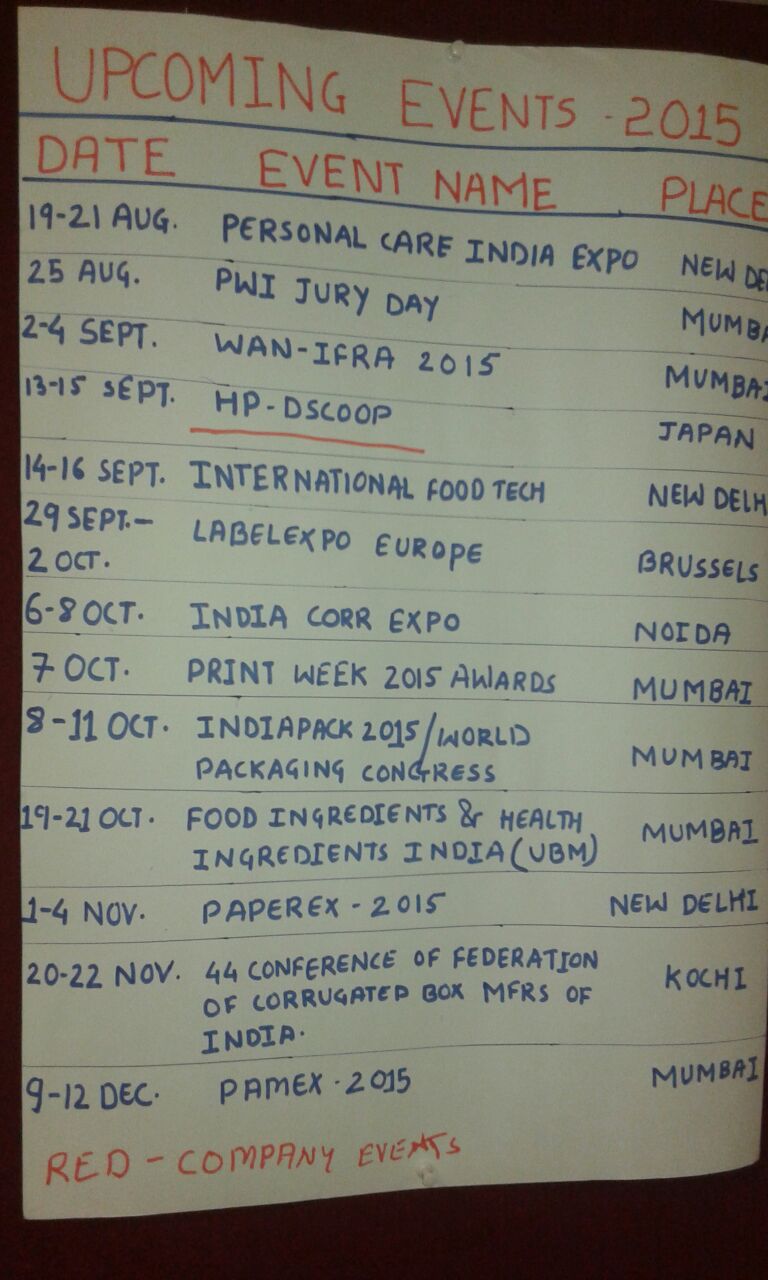 UPCOMING EVENTS - 2015
DATE EVENT NAME PLACE
19-21 AUG. PERSONAL CARE INDIA EXPO NEW DE
25 AUG. PWI JURY DAY MUMBA
2-4 SEPT. WAN-IFRA 2015 MUMBAI
13-15 SEPT. HP-DSCOOP JAPAN
14-16 SEPT. INTERNATIONAL FOOD TECH NEW DELH
29 SEPT.- LABELEXPO EUROPE BRUSSELS
2 OCT.
6-8 OCT. INDIA CORR EXPO NOIDA
7 OCT. PRINT WEEK 2015 AWARDS MUMBAI
8-11 OCT. INDIAPACK 2015/WORLD MUMBAI
PACKAGING CONGRESS
19-21 OCT. FOOD INGREDIENTS & HEALTH MUMBAI
INGREDIENTS INDIA (UBM)
1-4 NOV. PAPEREX - 2015 NEW DELHI
20-22 NOV. 44 CONFERENCE OF FEDERATION KOCHI
OF CORRUGATED BOX MFRS OF
INDIA.
9-12 DEC. PAMEX - 2015 MUMBAI
RED - COMPANY EVENTS